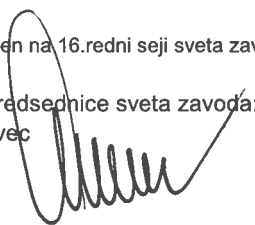 en na 16.redni seji sveta zav
redsednice sveta zavoda:
vec